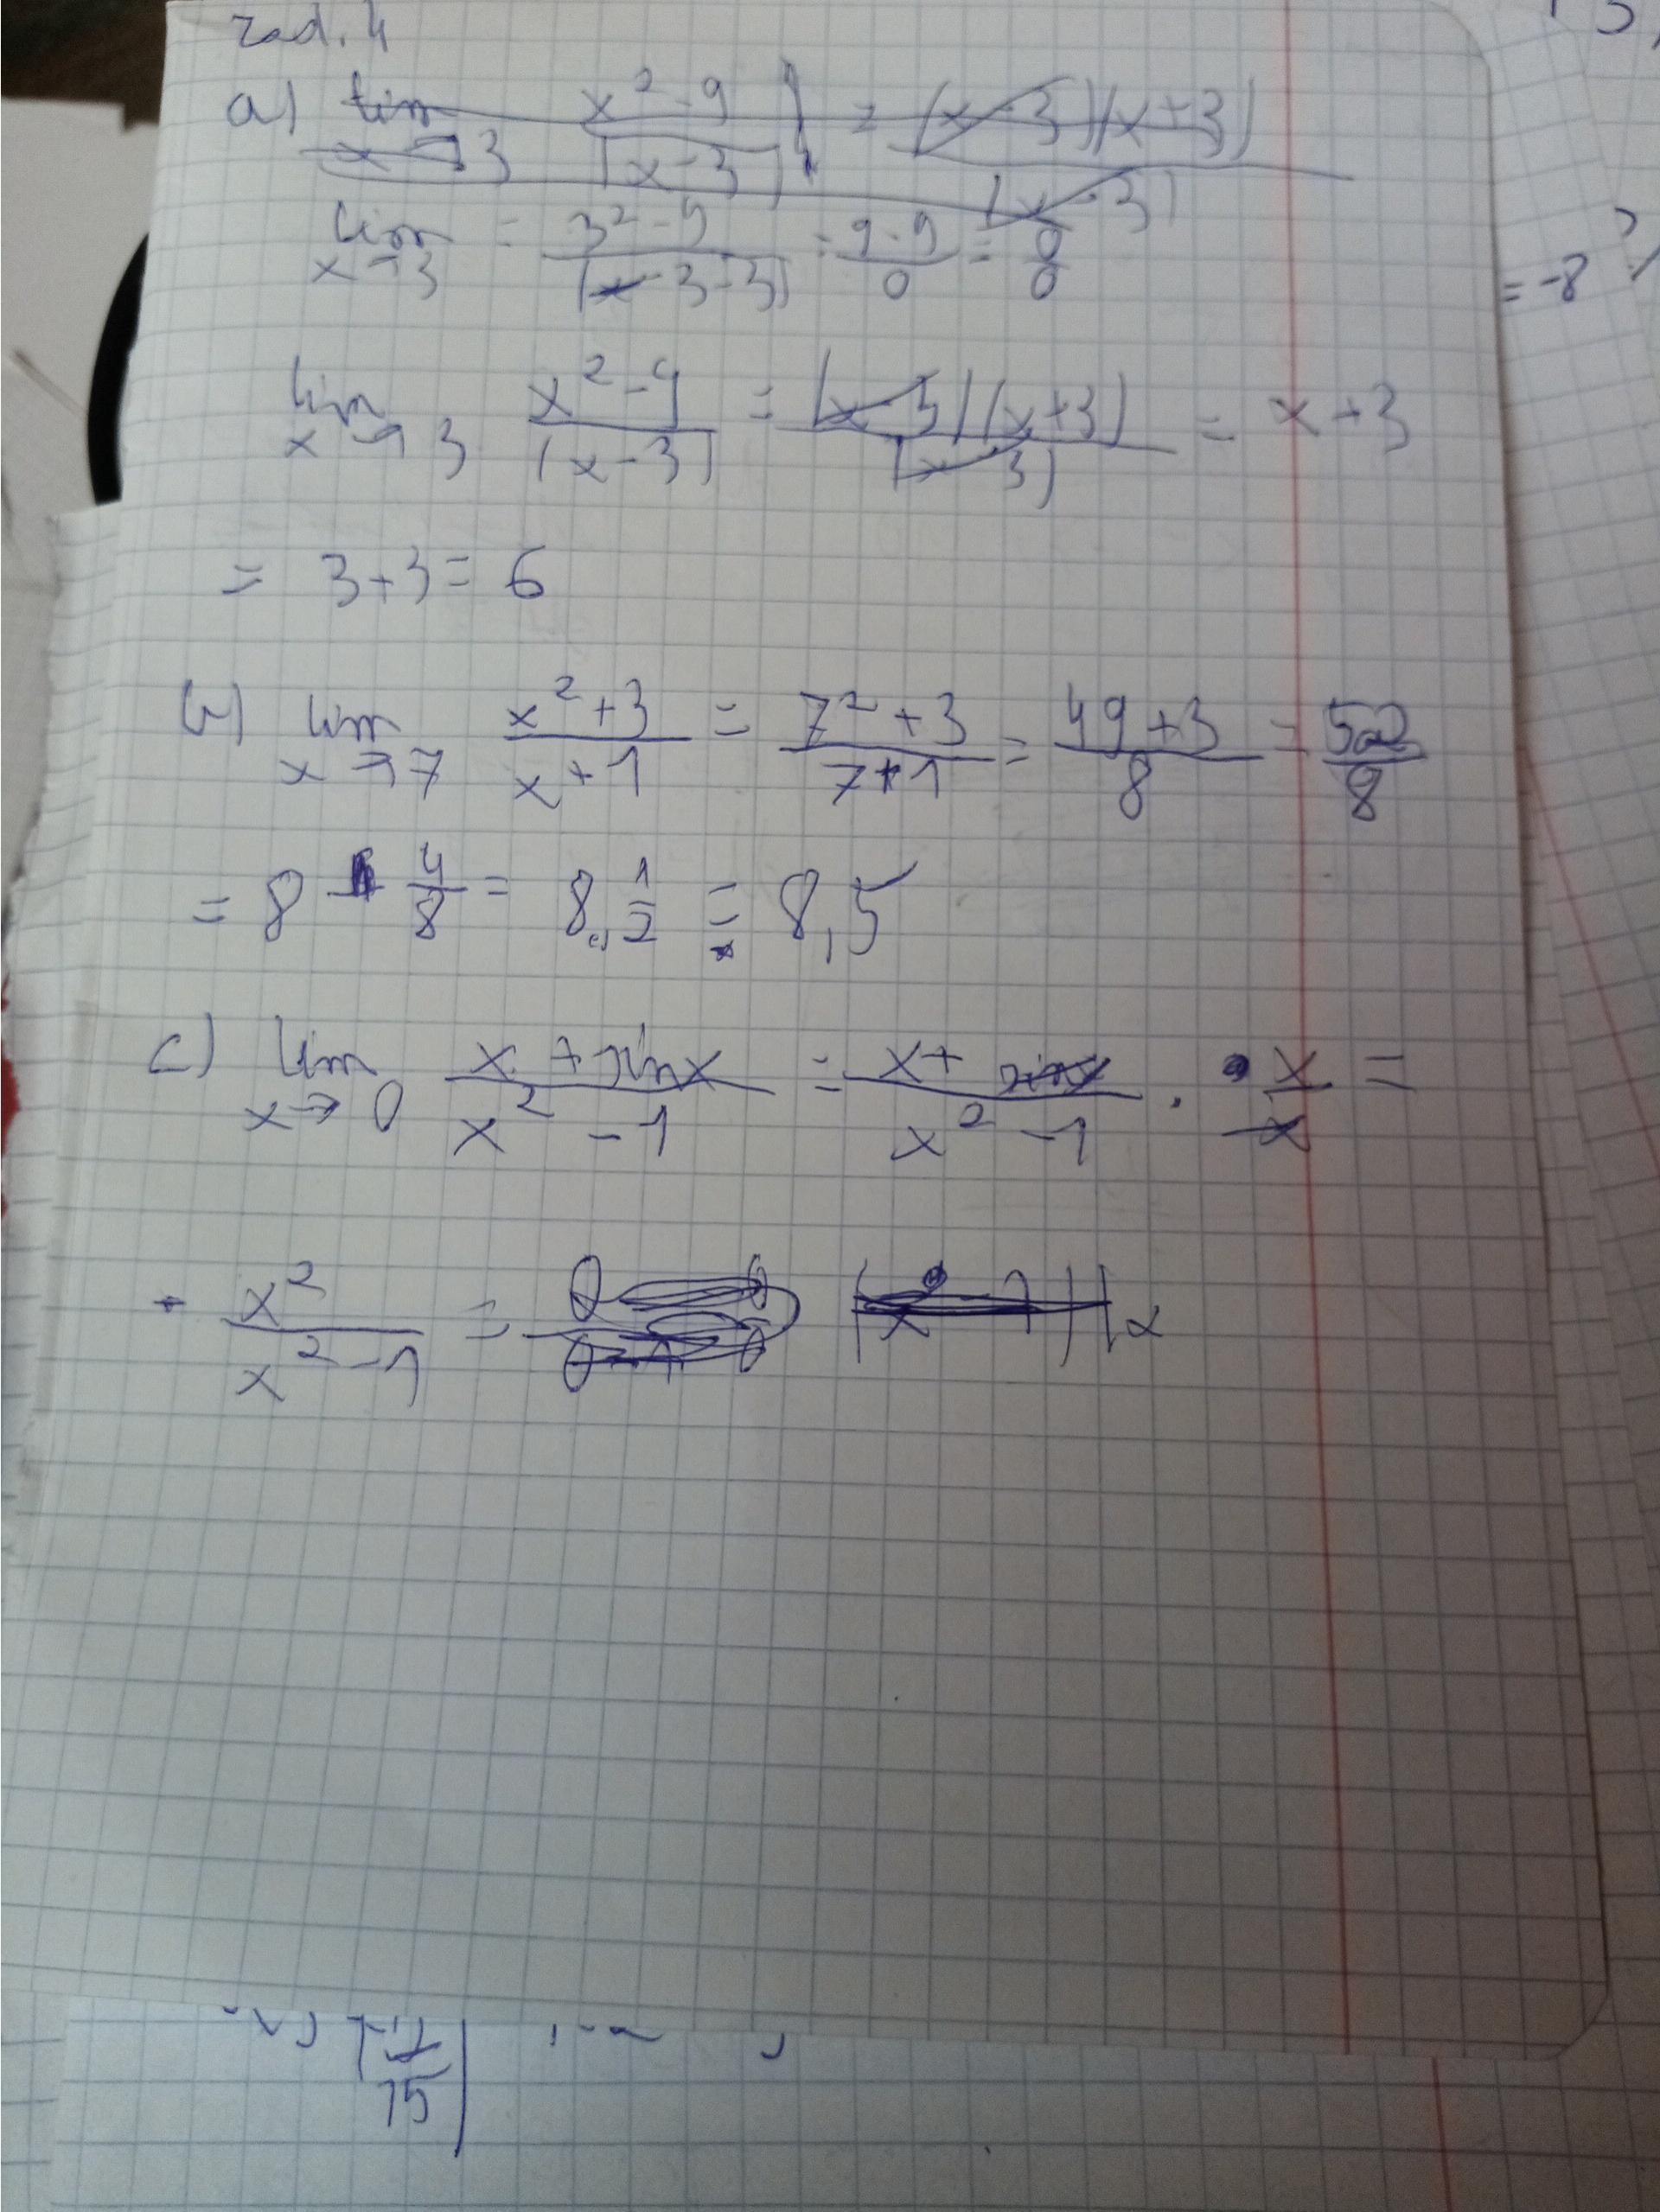 zad. 4
a) lim x→3 x² - 9 / |x - 3| = (x - 3)(x + 3) / |x - 3|
lim x→3 = 3² - 9 / |3 - 3| = 9 - 9 / 0 = 0 / 0
lim x→3 x² - 9 / |x - 3| = (x - 3)(x + 3) / |x - 3| = x + 3
= 3 + 3 = 6
b) lim x→7 x² + 3 / x + 1 = 7² + 3 / 7 + 1 = 49 + 3 / 8 = 52 / 8
= 8 4/8 = 8,1/2 = 8,5
c) lim x→0 x + sinx / x² - 1 = x + sinx / x² - 1 · x / x =
x² / x² - 1 =
= -8
15